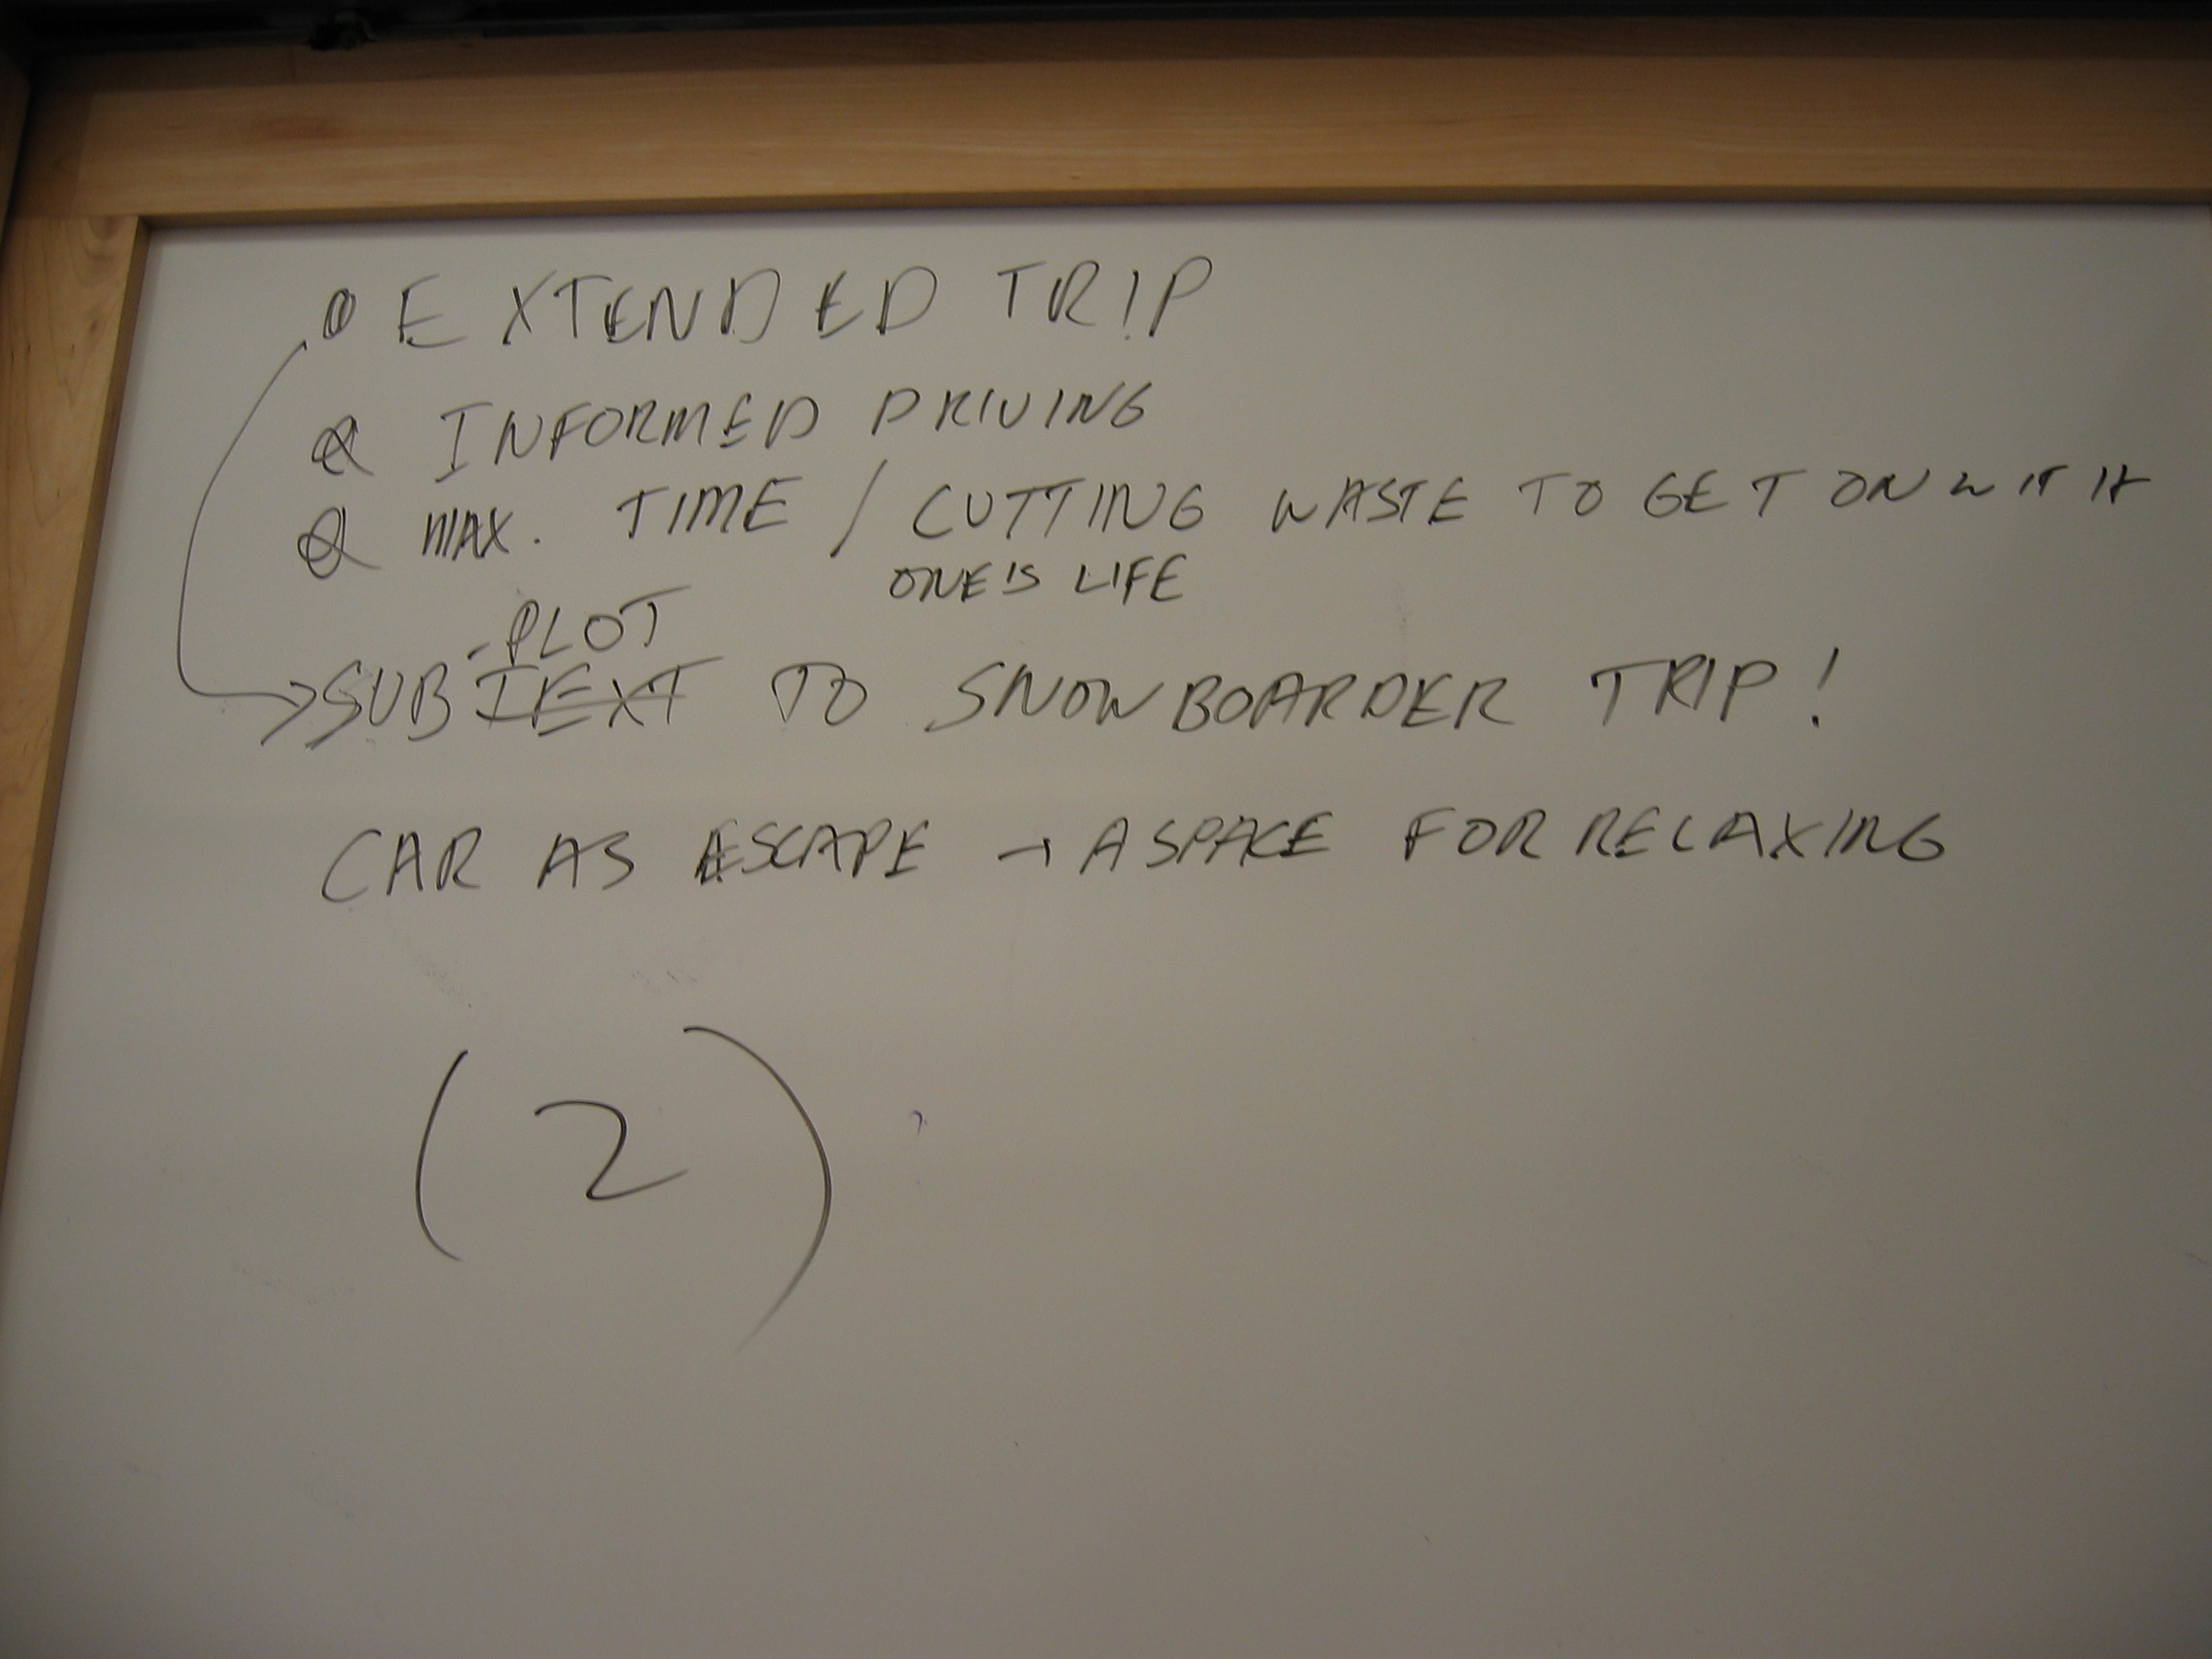 • EXTENDED TRIP
• INFORMED DRIVING
• MAX. TIME / CUTTING WASTE TO GET ON WITH
ONE'S LIFE
-PLOT
→ SUBTEXT TO SNOWBOARDER TRIP!
CAR AS ESCAPE → A SPACE FOR RELAXING
(2)